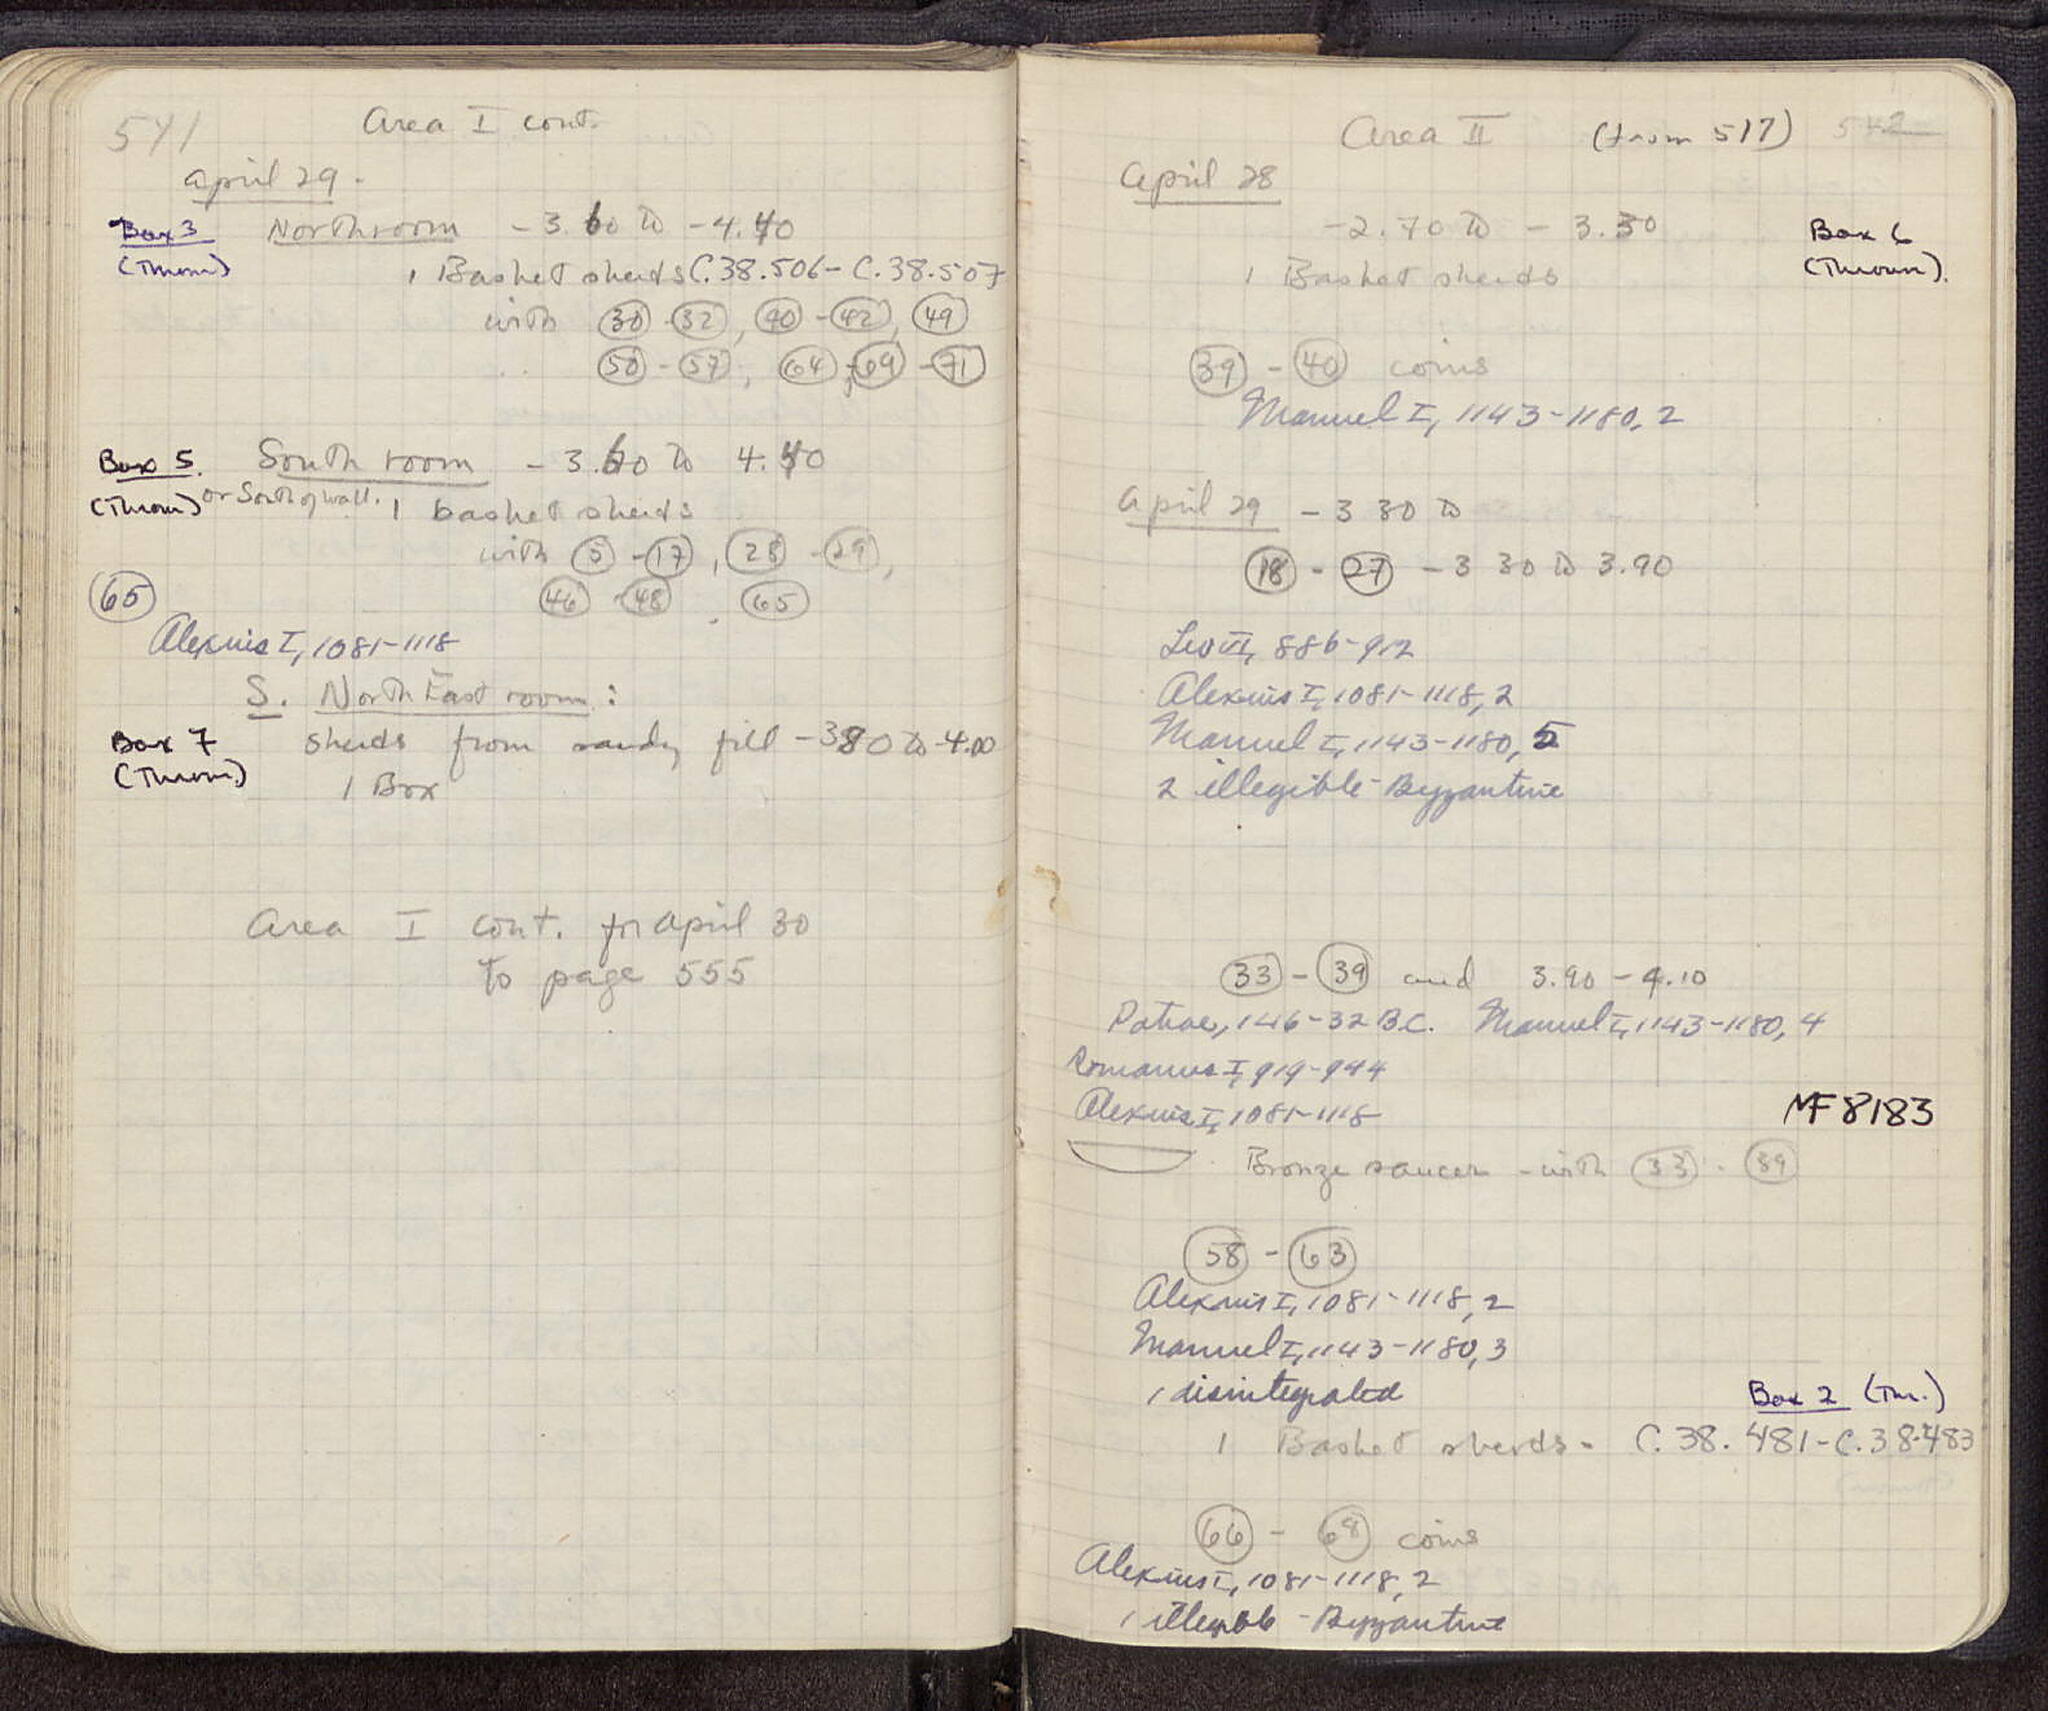 541
Area I cont.
April 29.
Box 3 North room -3.60 to -4.40
(Thrown) 1 Basket sherds C.38.506-C.38.507
with 30-32, 40-42, 49
50-57, 64, 69-71
Box 5. South room -3.60 to 4.40
(Thrown) or South of wall. 1 basket sherds
with 5-17, 28-29,
46-48, 65
65
Alexius I, 1081-1118
S. North East room:
Box 7 sherds from sandy fill -3.80 to -4.00
(Thrown) 1 Box
Area I cont. for April 30
to page 555
Area II (from 517) 542
April 28
-2.70 to -3.30 Box 6
1 Basket sherds (Thrown).
39-40 coins
Manuel I, 1143-1180, 2
April 29 -3 30 to
18-27 -3 30 to 3.90
Leo VI, 886-912
Alexius I, 1081-1118, 2
Manuel I, 1143-1180, 5
2 illegible-Byzantine
33-39 and 3.90-4.10
Patrae, 146-32 B.C. Manuel I, 1143-1180, 4
Romanus I, 919-944
Alexius I, 1081-1118
MF 8183
Bronze saucer - with 33-39
58-63
Alexius I, 1081-1118, 2
Manuel I, 1143-1180, 3
1 disintegrated
Box 2 (Thr.)
1 Basket sherds - C.38.481-C.38.483
66-68 coins
Alexius I, 1081-1118, 2
1 illegible - Byzantine